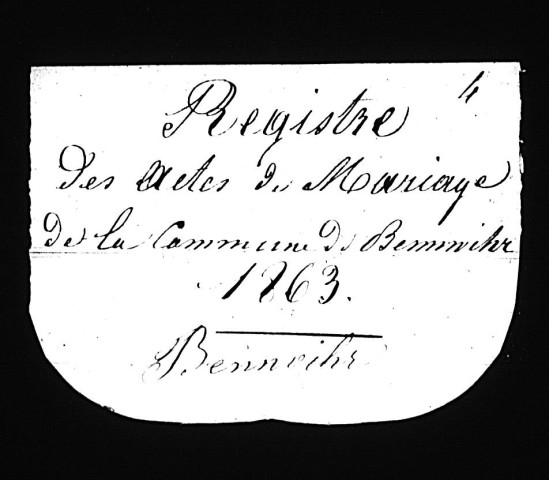 4
Registre
des actes de Mariage
de la Commune de Bennwihr
1863.
Bennwihr